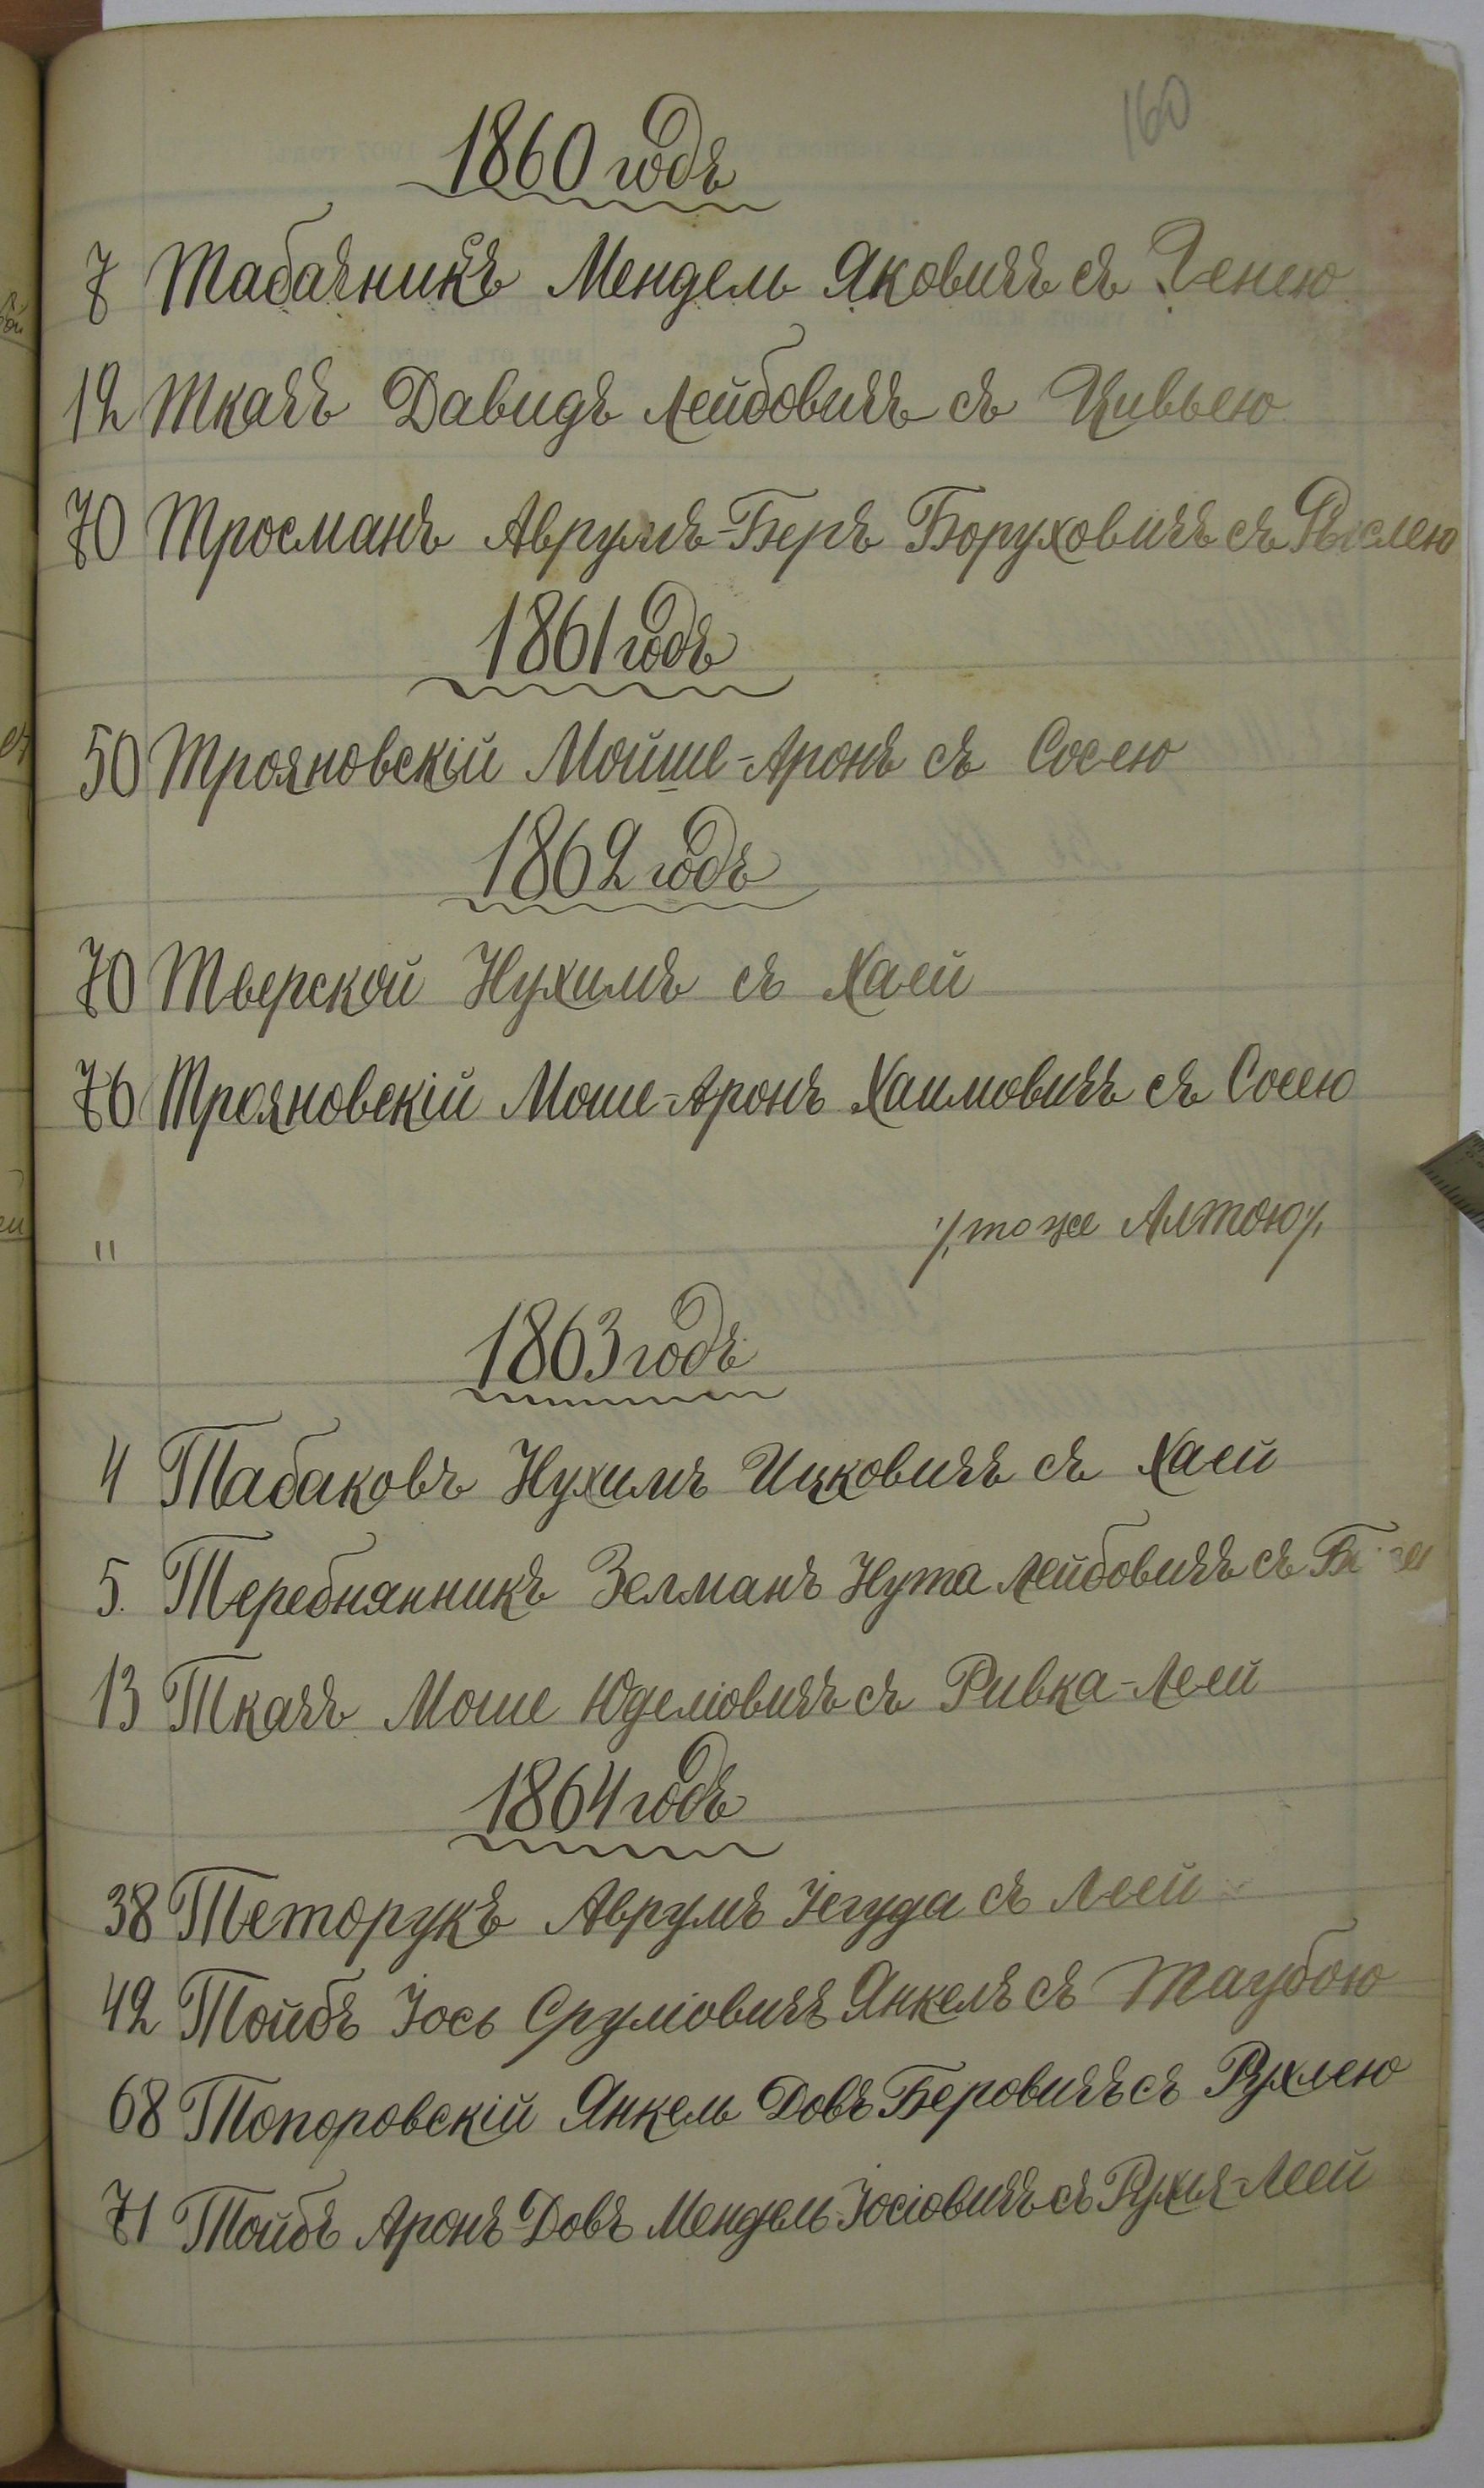 160
1860 годъ
7 Табачникъ Мендель Яковичъ съ Генею
12 Ткачъ Давидъ Лейбовичъ съ Цивьею
70 Тросманъ Аврумъ-Беръ Боруховичъ съ Рыслею
1861 годъ
50 Трояновскій Мойше-Аронъ съ Сосею
1862 годъ
70 Тверской Нухимъ съ Хаей
76 Трояновскій Моше-Аронъ Хаимовичъ съ Сосею
" ·/. тоже Алтою ·/.
1863 годъ
4 Табаковъ Нухимъ Ицковичъ съ Хаей
5. Теребнянникъ Зелманъ Нута Лейбовичъ съ
13 Ткачъ Моше Юделіовичъ съ Ривка-Леей
1864 годъ
38 Теторукъ Аврумъ Іегуда съ Леей
42 Тойбъ Іось Сруліовичъ Янкель съ Таубою
68 Топоровскій Янкель Довъ Беровичъ съ Рухлею
71 Тойбъ Аронъ-Довъ Мендель Іосіовичъ съ Рухля-Леей